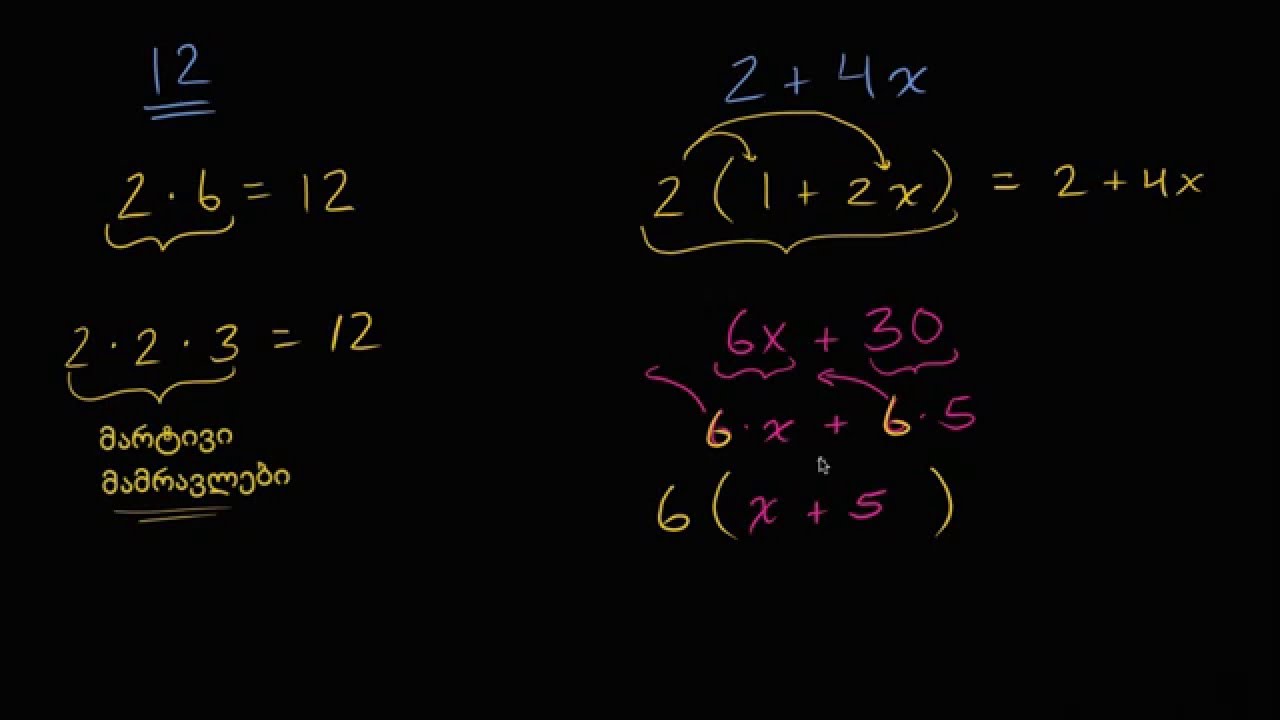 12
2 · 6 = 12
2 · 2 · 3 = 12
მარტივი
მამრავლები
2 + 4x
2 ( 1 + 2x ) = 2 + 4x
6x + 30
6 · x + 6 · 5
6 ( x + 5 )